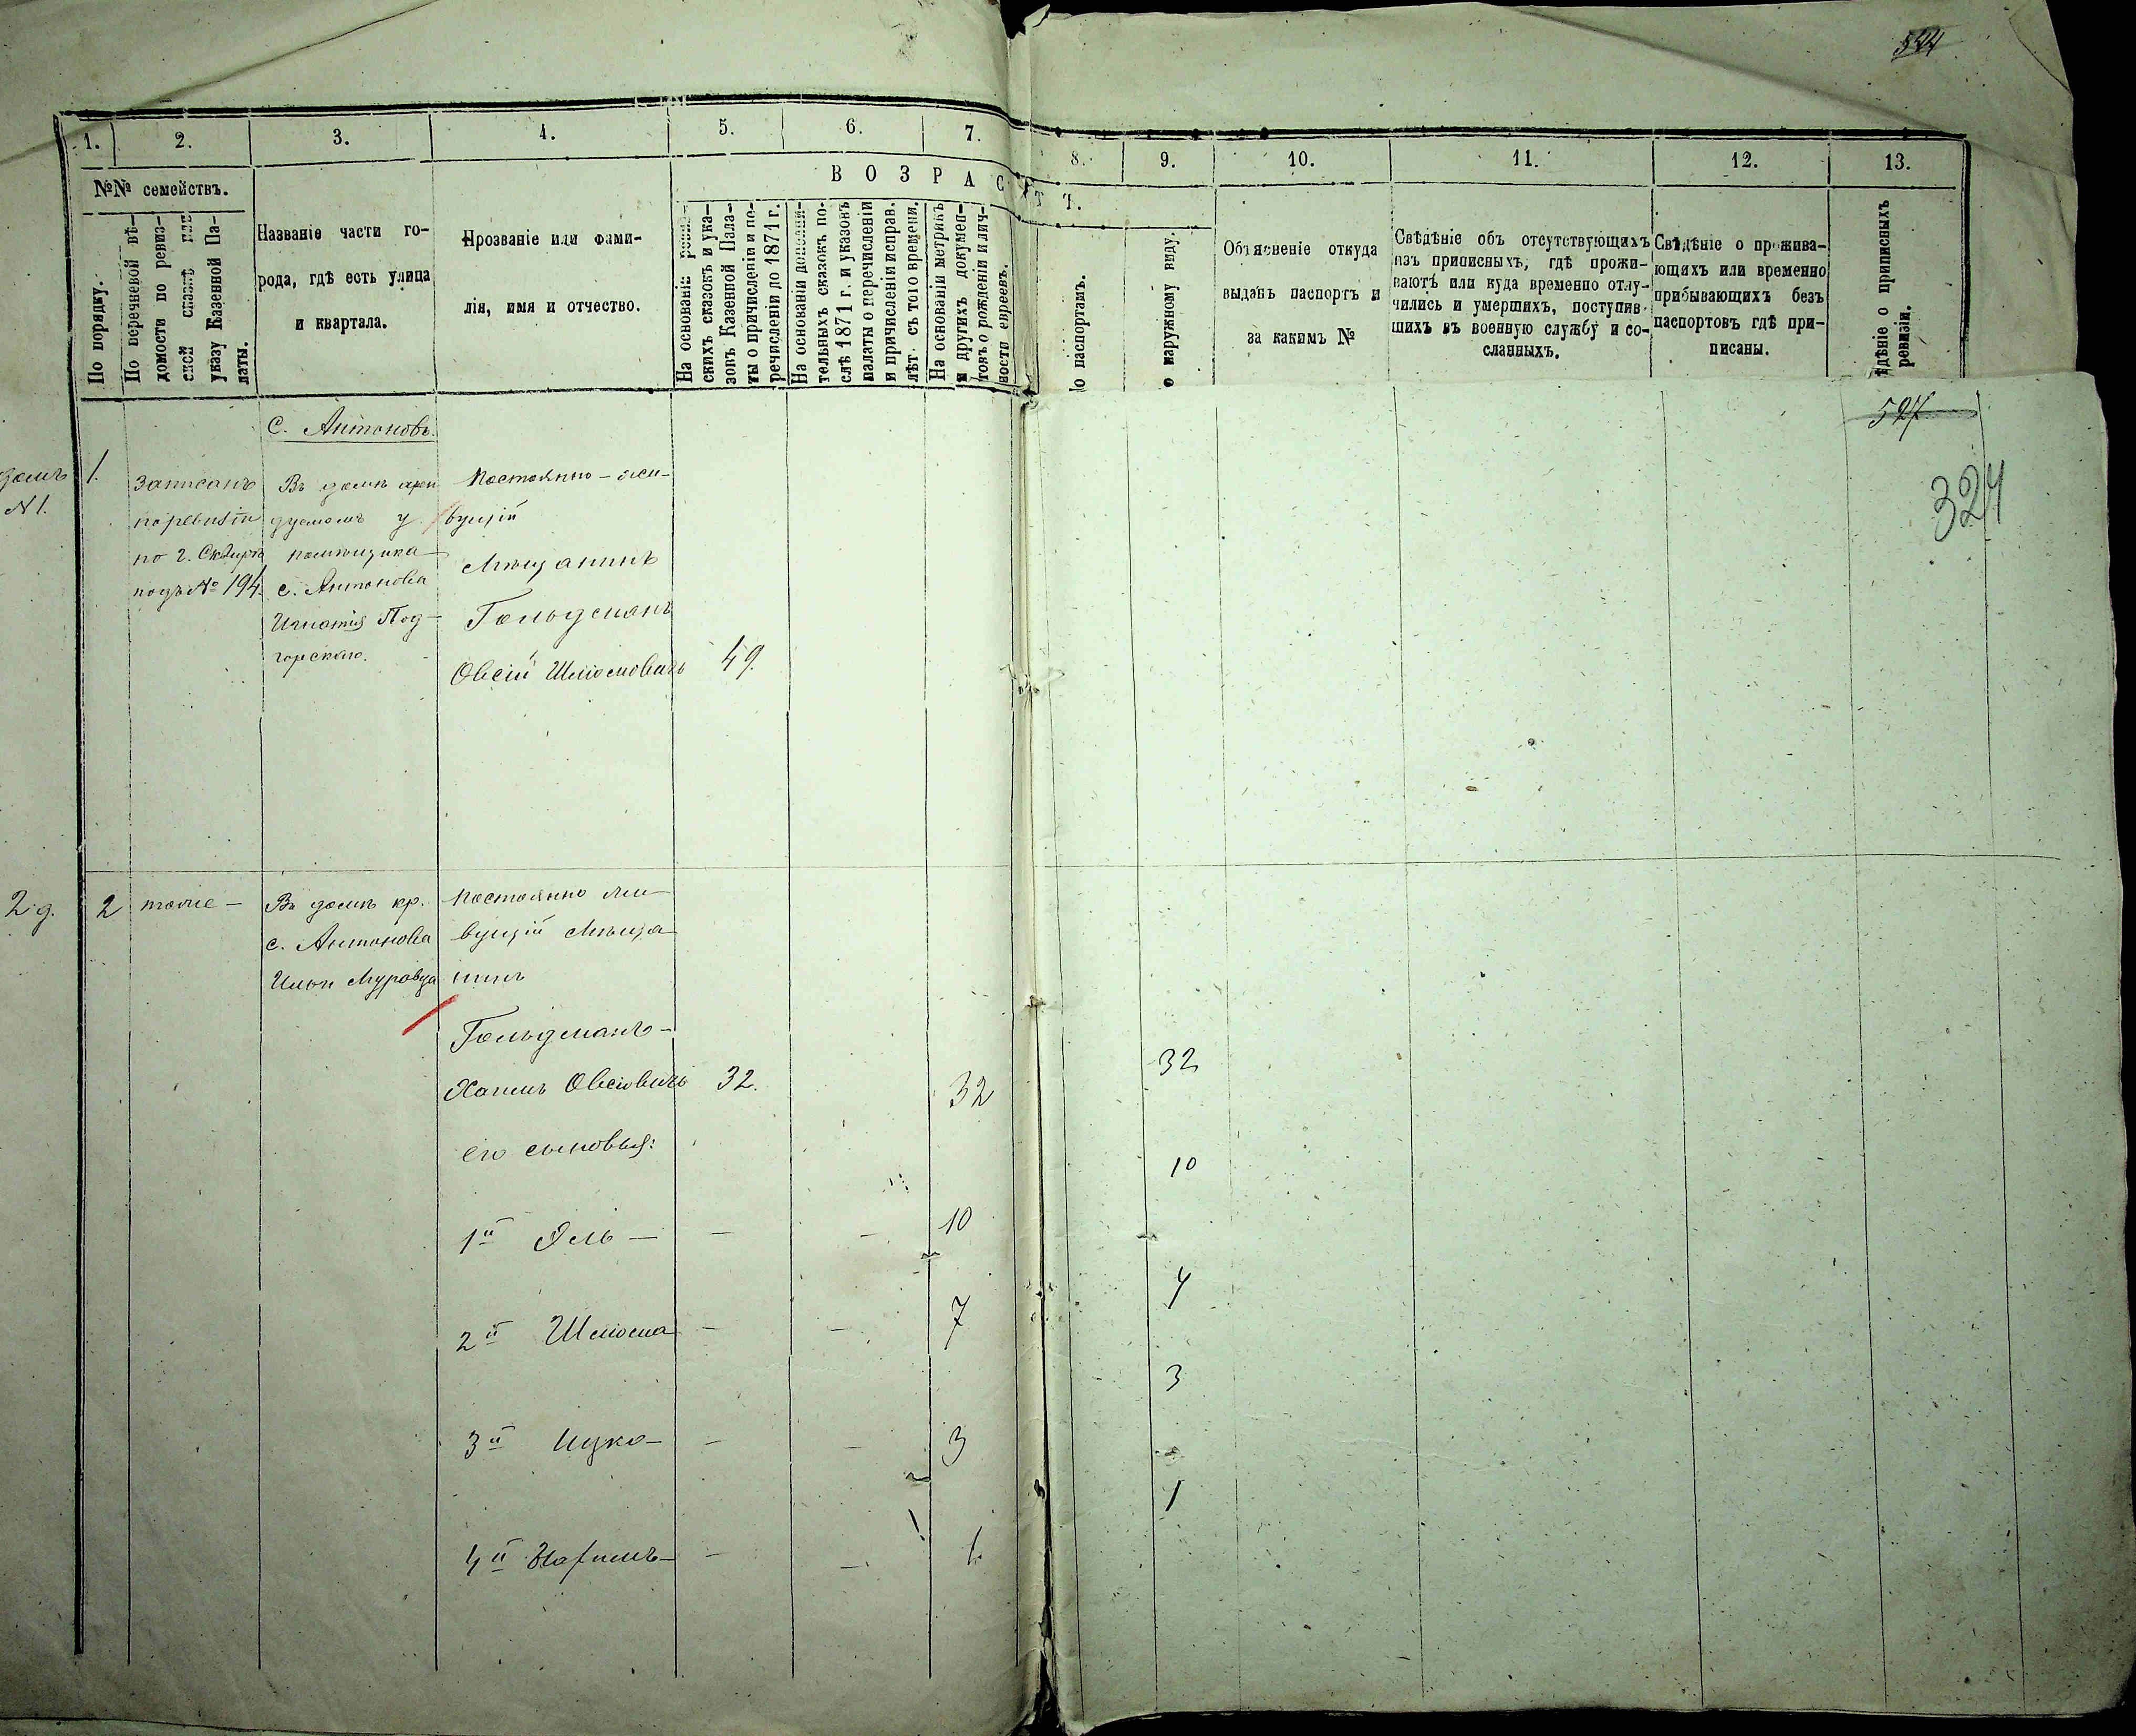 1. 2. 3. 4. 5. 6. 7. 8. 9. 10. 11. 12. 13.
В О З Р А С Т Ъ.
№№ семействъ.
По порядку.
По перечневой вѣ-
домости по ревиз-
ской сказкѣ или
указу Казенной Па-
латы.
Названіе части го-
рода, гдѣ есть улица
и квартала.
Прозваніе или фами-
лія, имя и отчество.
На основаніи ревиз-
скихъ сказокъ и ука-
зовъ Казенной Пала-
ты о причисленіи и пе-
речисленіи до 1871 г.
На основаніи дополни-
тельныхъ сказокъ по-
слѣ 1871 г. и указовъ
палаты о перечисленіи
и причисленіи исправ.
лѣт. съ того времени.
На основаніи метрикъ
и другихъ докумен-
товъ о рожденіи и лич-
ности евреевъ.
о паспортамъ.
о наружному виду.
Объясненіе откуда
выданъ паспортъ и
за какимъ №
Свѣдѣніе объ отсутствующихъ
изъ приписныхъ, гдѣ прожи-
ваютъ или куда временно отлу-
чились и умершихъ, поступив-
шихъ въ военную службу и со-
сланныхъ.
Свѣдѣніе о прожива-
ющихъ или временно
прибывающихъ безъ
паспортовъ гдѣ при-
писаны.
ѣдѣніе о приписныхъ
ревизіи.
527
324
С. Антоновъ.
домъ
№ 1.
1.
Записанъ
по ревизіи
по г. Сквирѣ
подъ № 194.
Въ домѣ арен
дуемомъ у
помѣщика
с. Антонова
Игнатія Под-
горскаго.
Постоянно-жи-
вущій
Мѣщанинъ
Гольдманъ
Овсій Шлiомовичъ 49.
2 д.
2
тоже -
Въ домѣ кр.
с. Антонова
Ильи Муравца
Постоянно жи-
вущій Мѣща-
нинъ
Гольдманъ-
Хаимъ Овсіовичъ 32. 32 32
его сыновья:
1й Эль - - - 10 10
2й Шлiома - - 7 7
3й Ицко - - - 3 3
4й Нахимъ - - - 1. 1